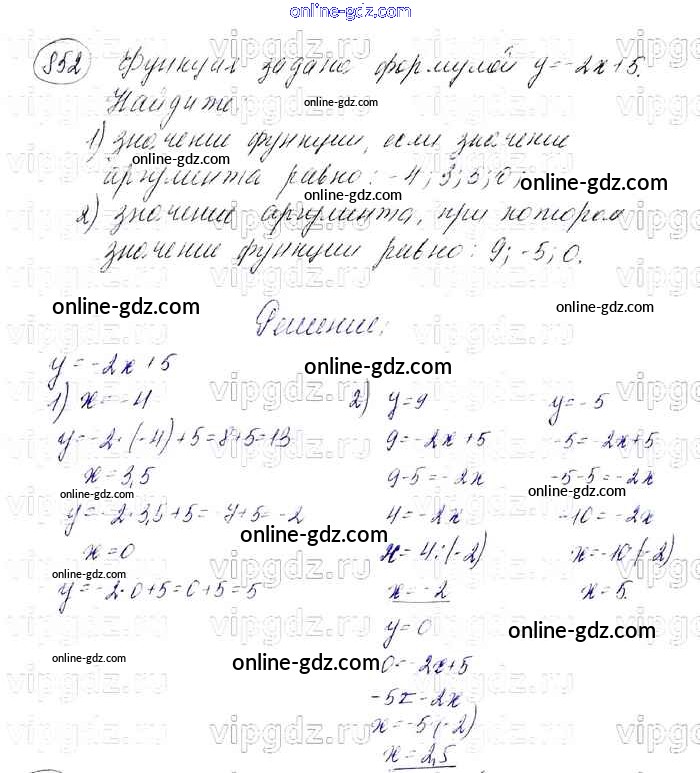 online-gdz.com
852 Функция задана формулой y=-2x+5.
Найдите:
online-gdz.com
1) значение функции, если значение
online-gdz.com
аргумента равно: -4; 3,5; 0;
online-gdz.com
2) значение аргумента, при котором
значение функции равно: 9; -5; 0.
online-gdz.com
online-gdz.com
Решение:
online-gdz.com
y=-2x+5
1) x=-4
y=-2·(-4)+5=8+5=13
x=3,5
online-gdz.com
y=-2·3,5+5=-7+5=-2
online-gdz.com
x=0
online-gdz.com
y=-2·0+5=0+5=5
online-gdz.com
2) y=9
9=-2x+5
9-5=-2x
4=-2x
x=4:(-2)
x=-2
y=-5
-5=-2x+5
-5-5=-2x
online-gdz.com
-10=-2x
x=-10:(-2)
x=5.
y=0
online-gdz.com
online-gdz.com
0=-2x+5
-5=-2x
x=-5:(-2)
x=2,5
vipgdz.ru